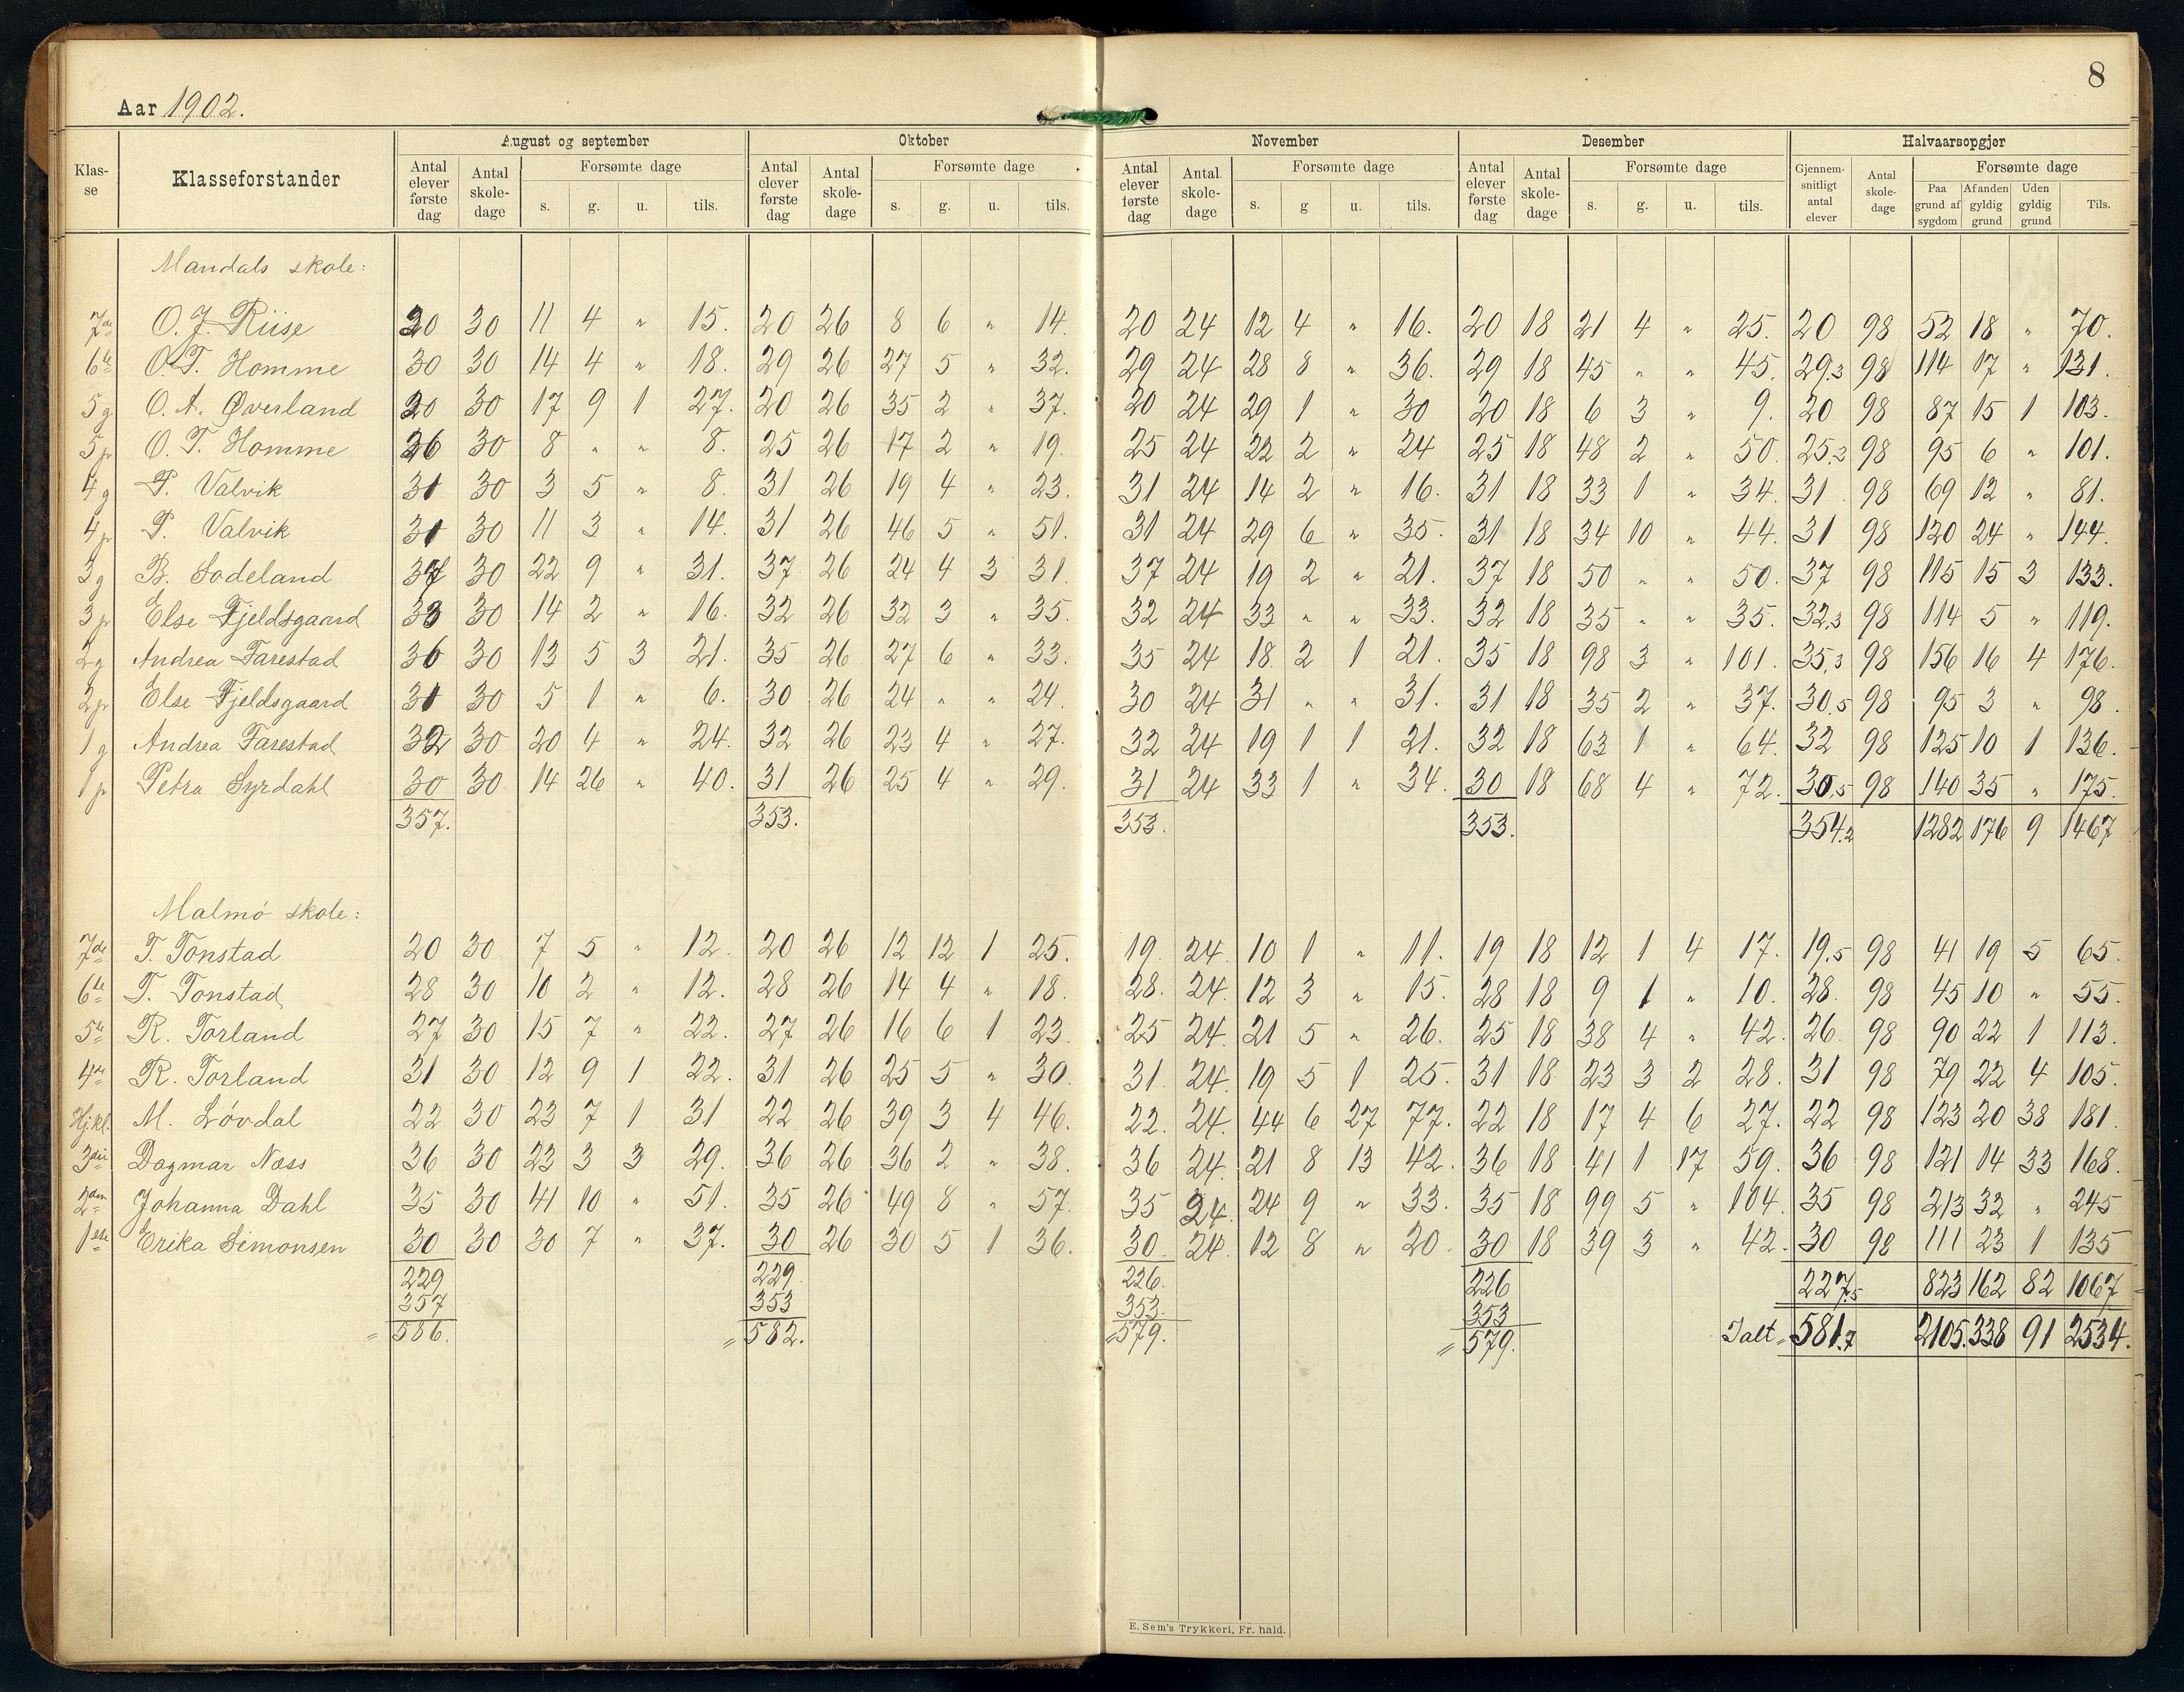 8
Aar 1902.
August og september Oktober November Desember Halvaarsopgjør
Klasse Klasseforstander Antal elever første dag Antal skole-dage Forsømte dage s. g. u. tils. Antal elever første dag Antal skole-dage Forsømte dage s. g. u. tils. Antal elever første dag Antal skole-dage Forsømte dage s. g u. tils. Antal elever første dag Antal skole-dage Forsømte dage s. g. u. tils. Gjennem-snitligt antal elever Antal skole-dage Forsømte dage Paa grund af sygdom Af anden gyldig grund Uden gyldig grund Tils.
Mandals skole:
7de O. J. Riise 20 30 11 4 " 15. 20 26 8 6 " 14. 20 24 12 4 " 16. 20 18 21 4 " 25. 20 98 52 18 " 70.
6te O. T. Homme 30 30 14 4 " 18. 29 26 27 5 " 32. 29 24 28 8 " 36. 29 18 45 " " 45. 29,3 98 114 17 " 131.
5g O. A. Øverland 20 30 17 9 1 27. 20 26 35 2 " 37. 20 24 29 1 " 30 20 18 6 3 " 9. 20 98 87 15 1 103.
5p O. T. Homme 26 30 8 " " 8. 25 26 17 2 " 19. 25 24 22 2 " 24 25 18 48 2 " 50. 25,3 98 95 6 " 101.
4g P. Valvik 31 30 3 5 " 8. 31 26 19 4 " 23. 31 24 14 2 " 16. 31 18 33 1 " 34. 31 98 69 12 " 81.
4p P. Valvik 31 30 11 3 " 14. 31 26 46 5 " 51. 31 24 29 6 " 35. 31 18 34 10 " 44. 31 98 120 24 " 144.
3g B. Sodeland 37 30 22 9 " 31. 37 26 24 4 3 31. 37 24 19 2 " 21. 37 18 50 " " 50. 37 98 115 15 3 133.
3p Else Fjeldsgaard 33 30 14 2 " 16. 32 26 32 3 " 35. 32 24 33 " " 33. 32 18 35 " " 35. 32,3 98 114 5 " 119.
2g Andrea Farestad 36 30 13 5 3 21. 35 26 27 6 " 33. 35 24 18. 2 1 21. 35 18 98 3 " 101. 35,3 98 156 16 4 176.
2p Else Fjeldsgaard 31 30 5 1 " 6. 30 26 24 " " 24. 30 24 31 " " 31. 31 18 35 2 " 37. 30,5 98 95 3 " 98.
1g Andrea Farestad 32 30 20 4 " 24. 32 26 23 4 " 27. 32 24 19 1 1 21. 32 18 63 1 " 64. 32 98 125 10 1 136.
1p Petra Syrdahl 30 30 14 26 " 40. 31 26 25 4 " 29. 31 24 33 1 " 34. 30 18 68 4 " 72. 30,5 98 140 35 " 175.
357. 353. 353. 353. 354,2 1282 176 9 1467
Malmø skole:
7de T. Tonstad 20 30 7 5 " 12. 20 26 12 12 1 25. 19. 24. 10 1 " 11. 19 18 12 1 4 17. 19,5 98 41 19 5 65.
6te T. Tonstad 28 30 10 2 " 12. 28 26 14 4 " 18. 28. 24. 12 3 " 15. 28 18 9 1 " 10. 28. 98 45 10 " 55.
5te R. Torland 27 30 15 7 " 22. 27 26 16 6 1 23. 25 24. 21 5 " 26. 25 18 38 4 " 42. 26. 98 90 22 1 113.
4de R. Torland 31 30 12 9 1 22. 31 26 25 5 " 30. 31. 24. 19 5 1 25. 31 18 23 3 2 28. 31 98 79 22 4 105.
Hj.kl. M. Løvdal 22 30 23 7 1 31 22 26 39 3 4 46. 22. 24. 44 6 27 77. 22 18 17 4 6 27. 22 98 123 20 38 181.
3die Dagmar Næss 36 30 23 3 3 29. 36 26 36 2 " 38. 36 24. 21 8 13 42. 36 18 41 1 17 59. 36 98 121 14 33 168.
2den Johanna Dahl 35 30 41 10 " 51. 35 26 49 8 " 57. 35 24. 24 9 " 33. 35 18 99 5 " 104. 35 98 213 32 " 245
1ste Erika Simonsen 30 30 30 7 " 37. 30 26 30 5 1 36. 30. 24. 12 8 " 20. 30 18 39 3 " 42. 30 98 111 23 1 135
229 229. 226. 226 227,5 823 162 82 1067
357 353 353. 353
= 586. = 582. = 579. = 579. Ialt = 581,7 2105. 338 91 2534.
E. Sem's Trykkeri, Fr. hald.